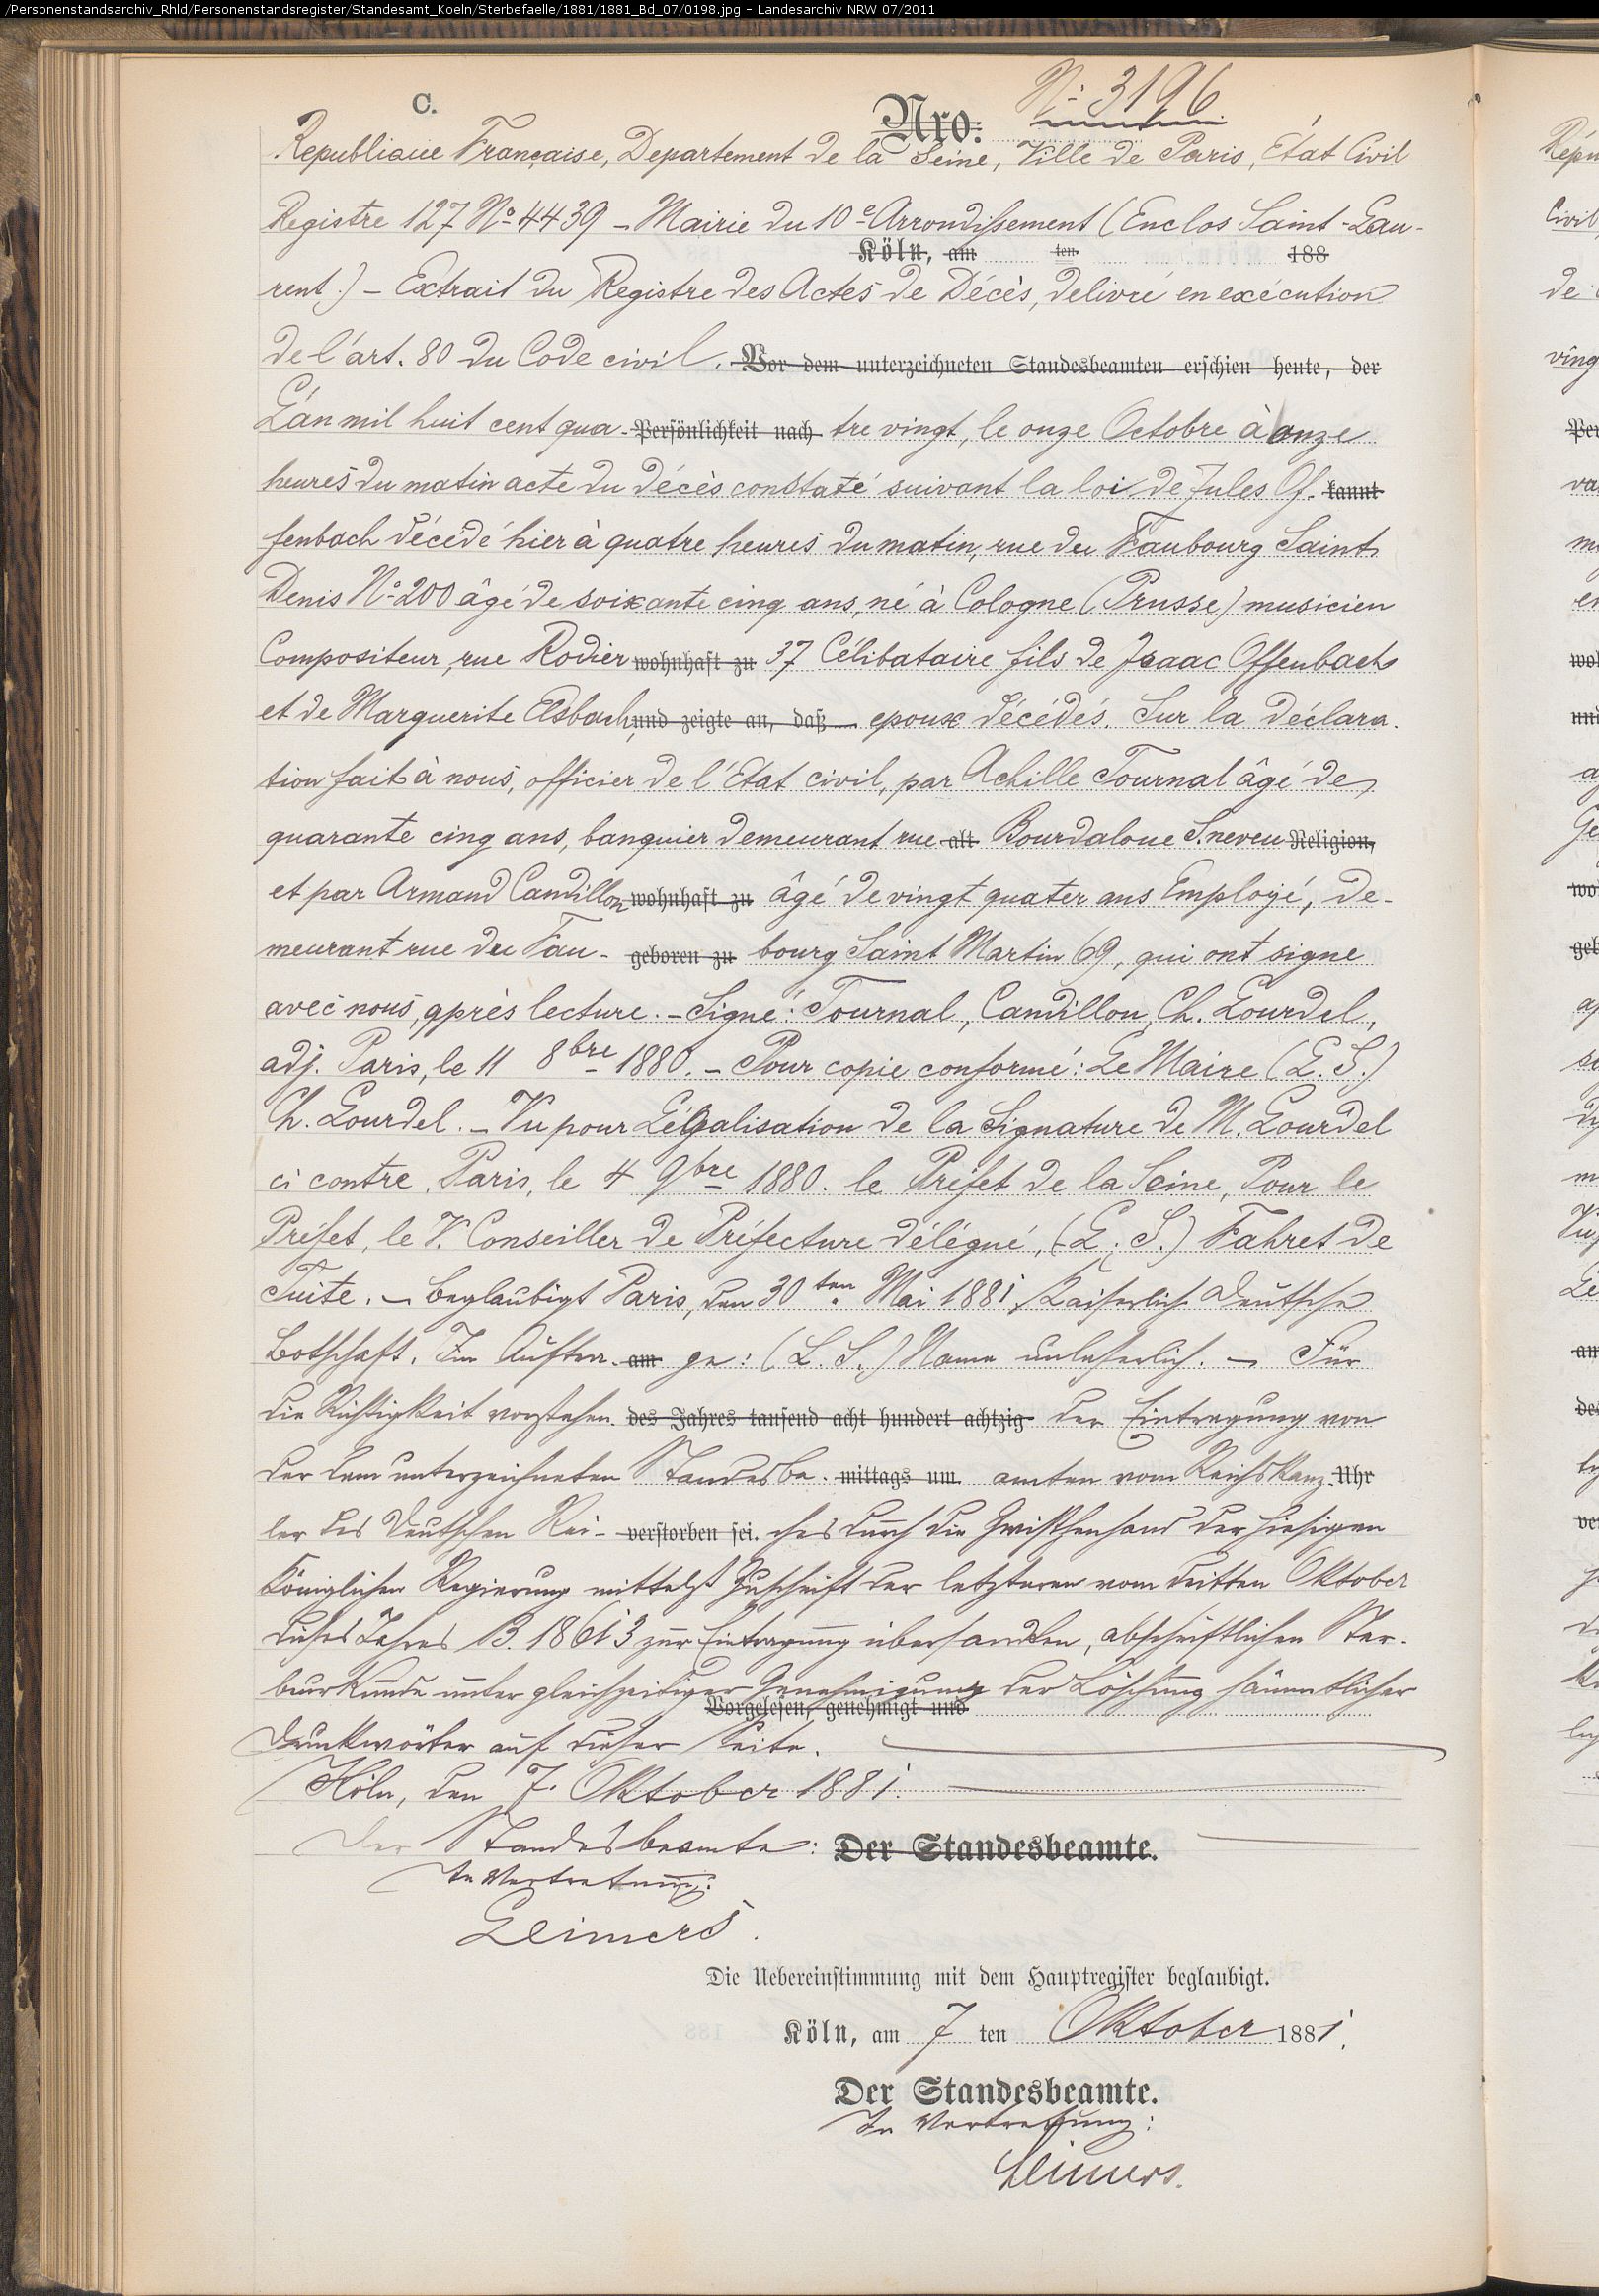 /Personenstandsarchiv_Rhld/Personenstandsregister/Standesamt_Koeln/Sterbefaelle/1881/1881_Bd_07/0198.jpg - Landesarchiv NRW 07/2011
C.
Nro. N° 3196
Republique Française, Departement de la Seine, Ville de Paris, État Civil
Registre 127 No 4439 – Mairie du 10e Arrondissement (Enclos Saint-Lau-
Köln, am ten 188
rent.) – Extrait du Registre des Actes de Décès, delivré en exécution
de l'art. 80 du Code civil. Vor dem unterzeichneten Standesbeamten erschien heute, der
L'an mil huit cent qua- Persönlichkeit nach tre vingt, le onze Octobre à onze
heures du matin acte du décès constaté suivant la loi de Jules Of- kannt
fenbach décédé hier à quatre heures du matin, rue du Faubourg Saint
Denis No 200 âgé de soixante cinq ans, né à Cologne (Prusse) musicien
Compositeur, rue Rodier wohnhaft zu 37 Célibataire fils de Isaac Offenbach
et de Marguerite Elsbach, und zeigte an, daß epoux décédés. Sur la déclara-
tion fait à nous, officier de l'Etat civil, par Achille Tournal âgé de
quarante cinq ans, banquier demeurant rue alt Bourdaloue 5. neveu Religion,
et par Armand Camdillon wohnhaft zu âgé de vingt quater ans Employé, de-
meurant rue du Fau- geboren zu bourg Saint Martin 69, qui ont signe
avec nous, après lecture. – Signé: Tournal, Camdillon, Ch. Lourdel,
adj. Paris, le 11 8bre 1880. – Pour copie conformé: Le Maire (L. S.)
Ch. Lourdel. – Vu pour Légalisation de la Signature de M. Lourdel
ci contre, Paris, le 4 9bre 1880. le Préfet de la Seine, Pour le
Préfet, le V. Conseiller de Préfecture délégué, (L. S.) Fahret de
Tuite. – Beglaubigt Paris, den 30ten Mai 1881, Kaiserlich Deutsche
Botschaft. Im Auftra- am ge: (L. S.) Name unleserlich. – Für
die Richtigkeit vorstehen- des Jahres tausend acht hundert achtzig der Eintragung von
der dem unterzeichneten Standesbe- mittags um amten vom Reichskanz- Uhr
ler des Deutschen Rei- verstorben sei. ches durch die Zwischenhand der hiesigen
Königlichen Regierung mittelst Zuschrift der letzteren vom dritten Oktober
dieses Jahres B. 18613 zur Eintragung übersandten, abschriftlichen Ster-
beurkunde unter gleichzeitiger Genehmigung der Löschung sämmtlicher
Vorgelesen, genehmigt und
Druckwörter auf dieser Seite.
Köln, den 7. Oktober 1881.
Der Standesbeamte: Der Standesbeamte.
In Vertretung:
Leimers.
Die Uebereinstimmung mit dem Hauptregister beglaubigt.
Köln, am 7 ten Oktober 1881.
Der Standesbeamte.
In Vertretung:
Leimers.